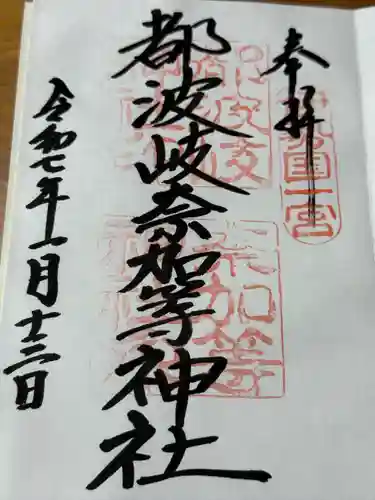 奉拝
伊勢国一宮
都波岐奈加等神社
令和七年一月十三日